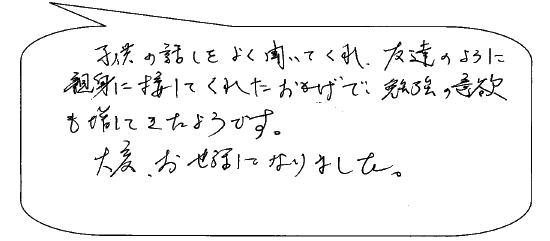 子供の話しをよく聞いてくれ、友達のように
親身に接してくれたおかげで、勉強の意欲
も増してきたようです。
大変、お世話になりました。